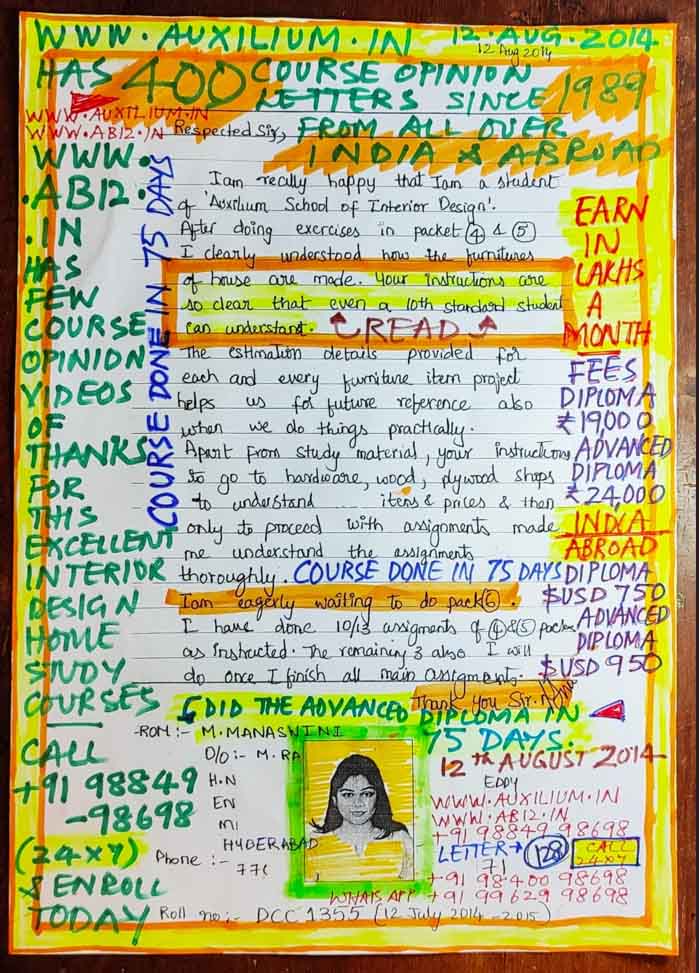 WWW.AUXILIUM.IN 12.AUG.2014
12 Aug 2014
HAS 400 COURSE OPINION
LETTERS SINCE 1989
FROM ALL OVER
INDIA & ABROAD
WWW.AUXILIUM.IN
WWW.AB12.IN
Respected Sir,
I am really happy that I am a student
of 'Auxilium School of Interior Design'.
After doing exercises in packet 4 & 5
I clearly understood how the furnitures
of house are made. Your instructions are
so clear that even a 10th standard student
can understant. READ
The estimation details provided for
each and every furniture item project
helps us for future reference also
when we do things practically.
Apart from study material, your instructions
to go to hardware, wood, plywood shops
to understand ... items & prices & then
only to proceed with assignments made
me understand the assignments
thoroughly. COURSE DONE IN 75 DAYS
I am eagerly waiting to do pack 6.
I have done 10/13 assigments of 4 & 5 packs
as instructed. The remaining 3 also I will
do once I finish all main assigments.
Thank you Sir.
I DID THE ADVANCED DIPLOMA IN
75 DAYS.
12TH AUGUST 2014
WWW.
AB12.
.IN
HAS
FEW
COURSE
OPINION
VIDEOS
OF
THANKS
FOR
THIS
EXCELLENT
INTERIOR
DESIGN
HOME
STUDY
COURSES
CALL
+91 98849
-98698
(24x7)
& ENROLL
TODAY
COURSE DONE IN 75 DAYS
EARN
IN
LAKHS
A
MONTH
FEES
DIPLOMA
₹19,000
ADVANCED
DIPLOMA
₹24,000
INDIA
ABROAD
DIPLOMA
$USD 750
ADVANCED
DIPLOMA
$USD 950
-ROM:- M.MANASWINI
D/o:- M.RA
H.N
EN
MI
HYDERABAD
Phone :-
776
Roll no:- DCC 1355 (12 July 2014 - 2015)
EDDY
WWW.AUXILIUM.IN
WWW.AB12.IN
+91 98849 98698
LETTER → 128
71
CALL
24x7
+91 98400 98698
WHATS APP +91 99629 98698